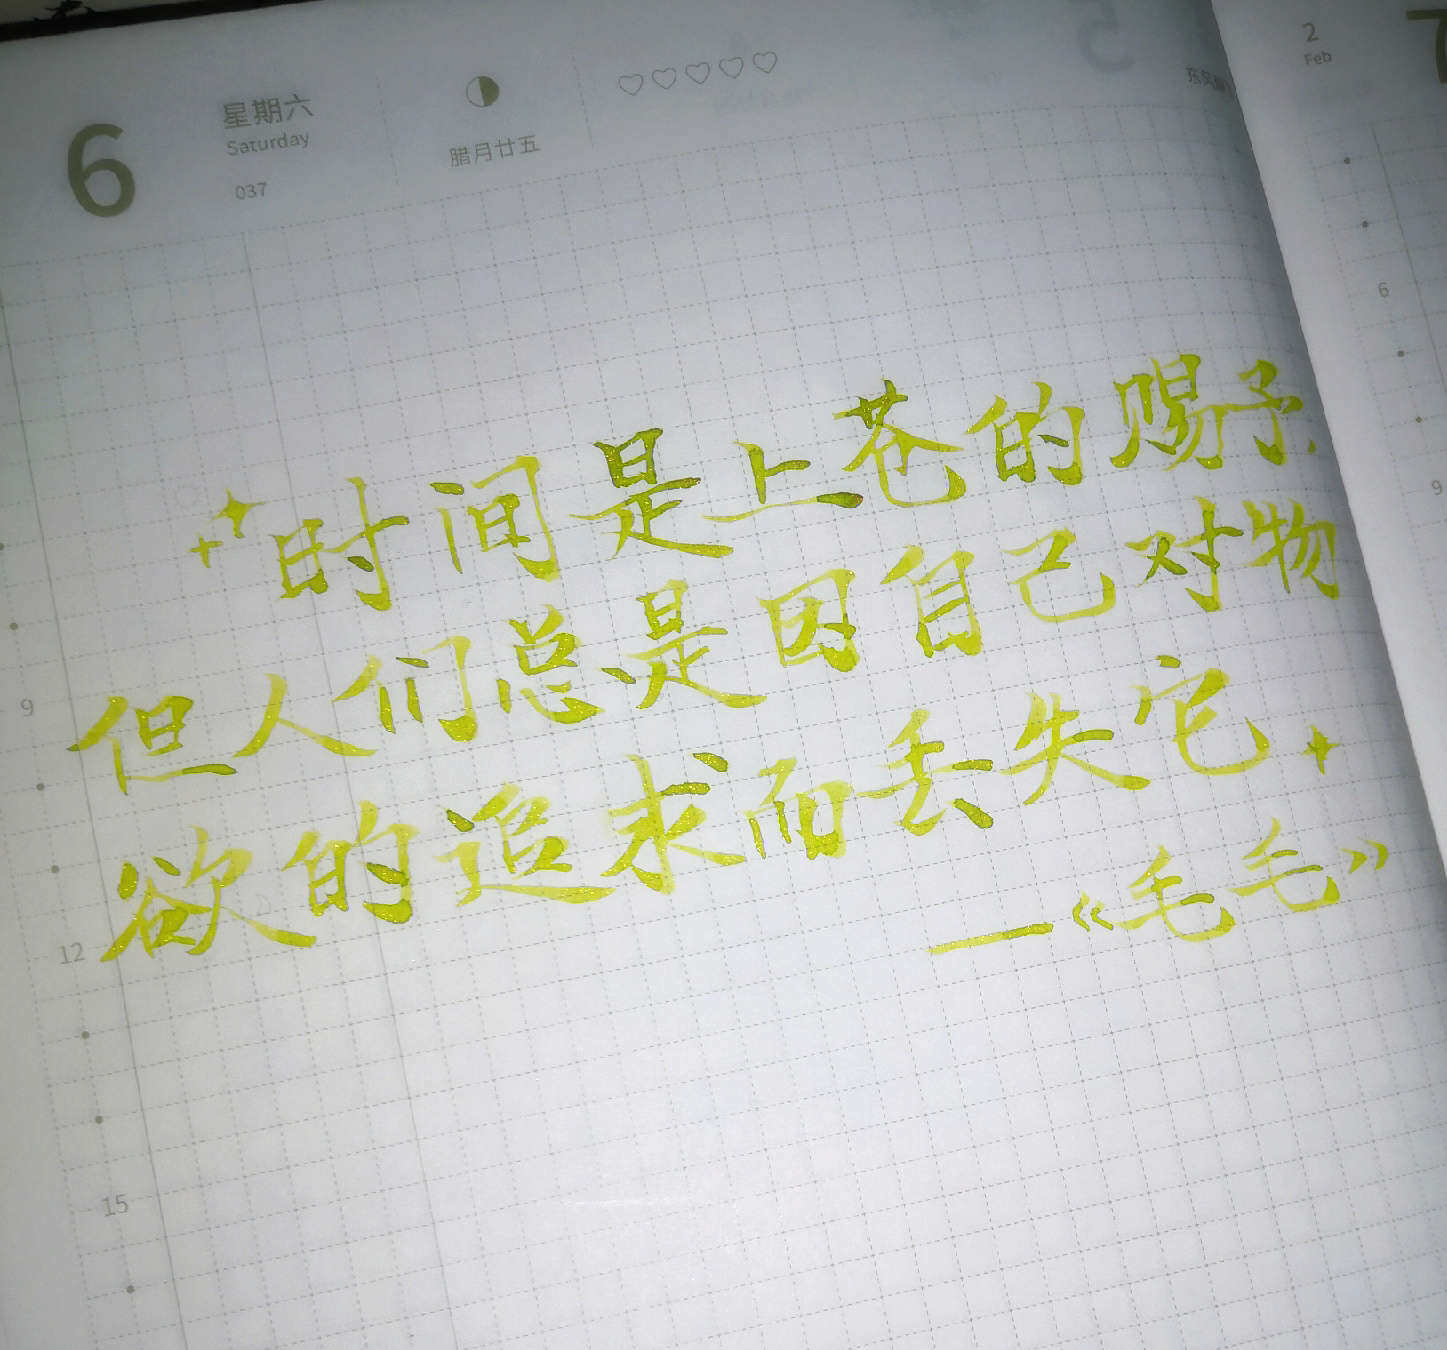 6
星期六
Saturday
037
腊月廿五
2
Feb
时间是上苍的赐予
但人们总是因自己对物
欲的追求而丢失它
—《毛毛》
9
12
15
6
9